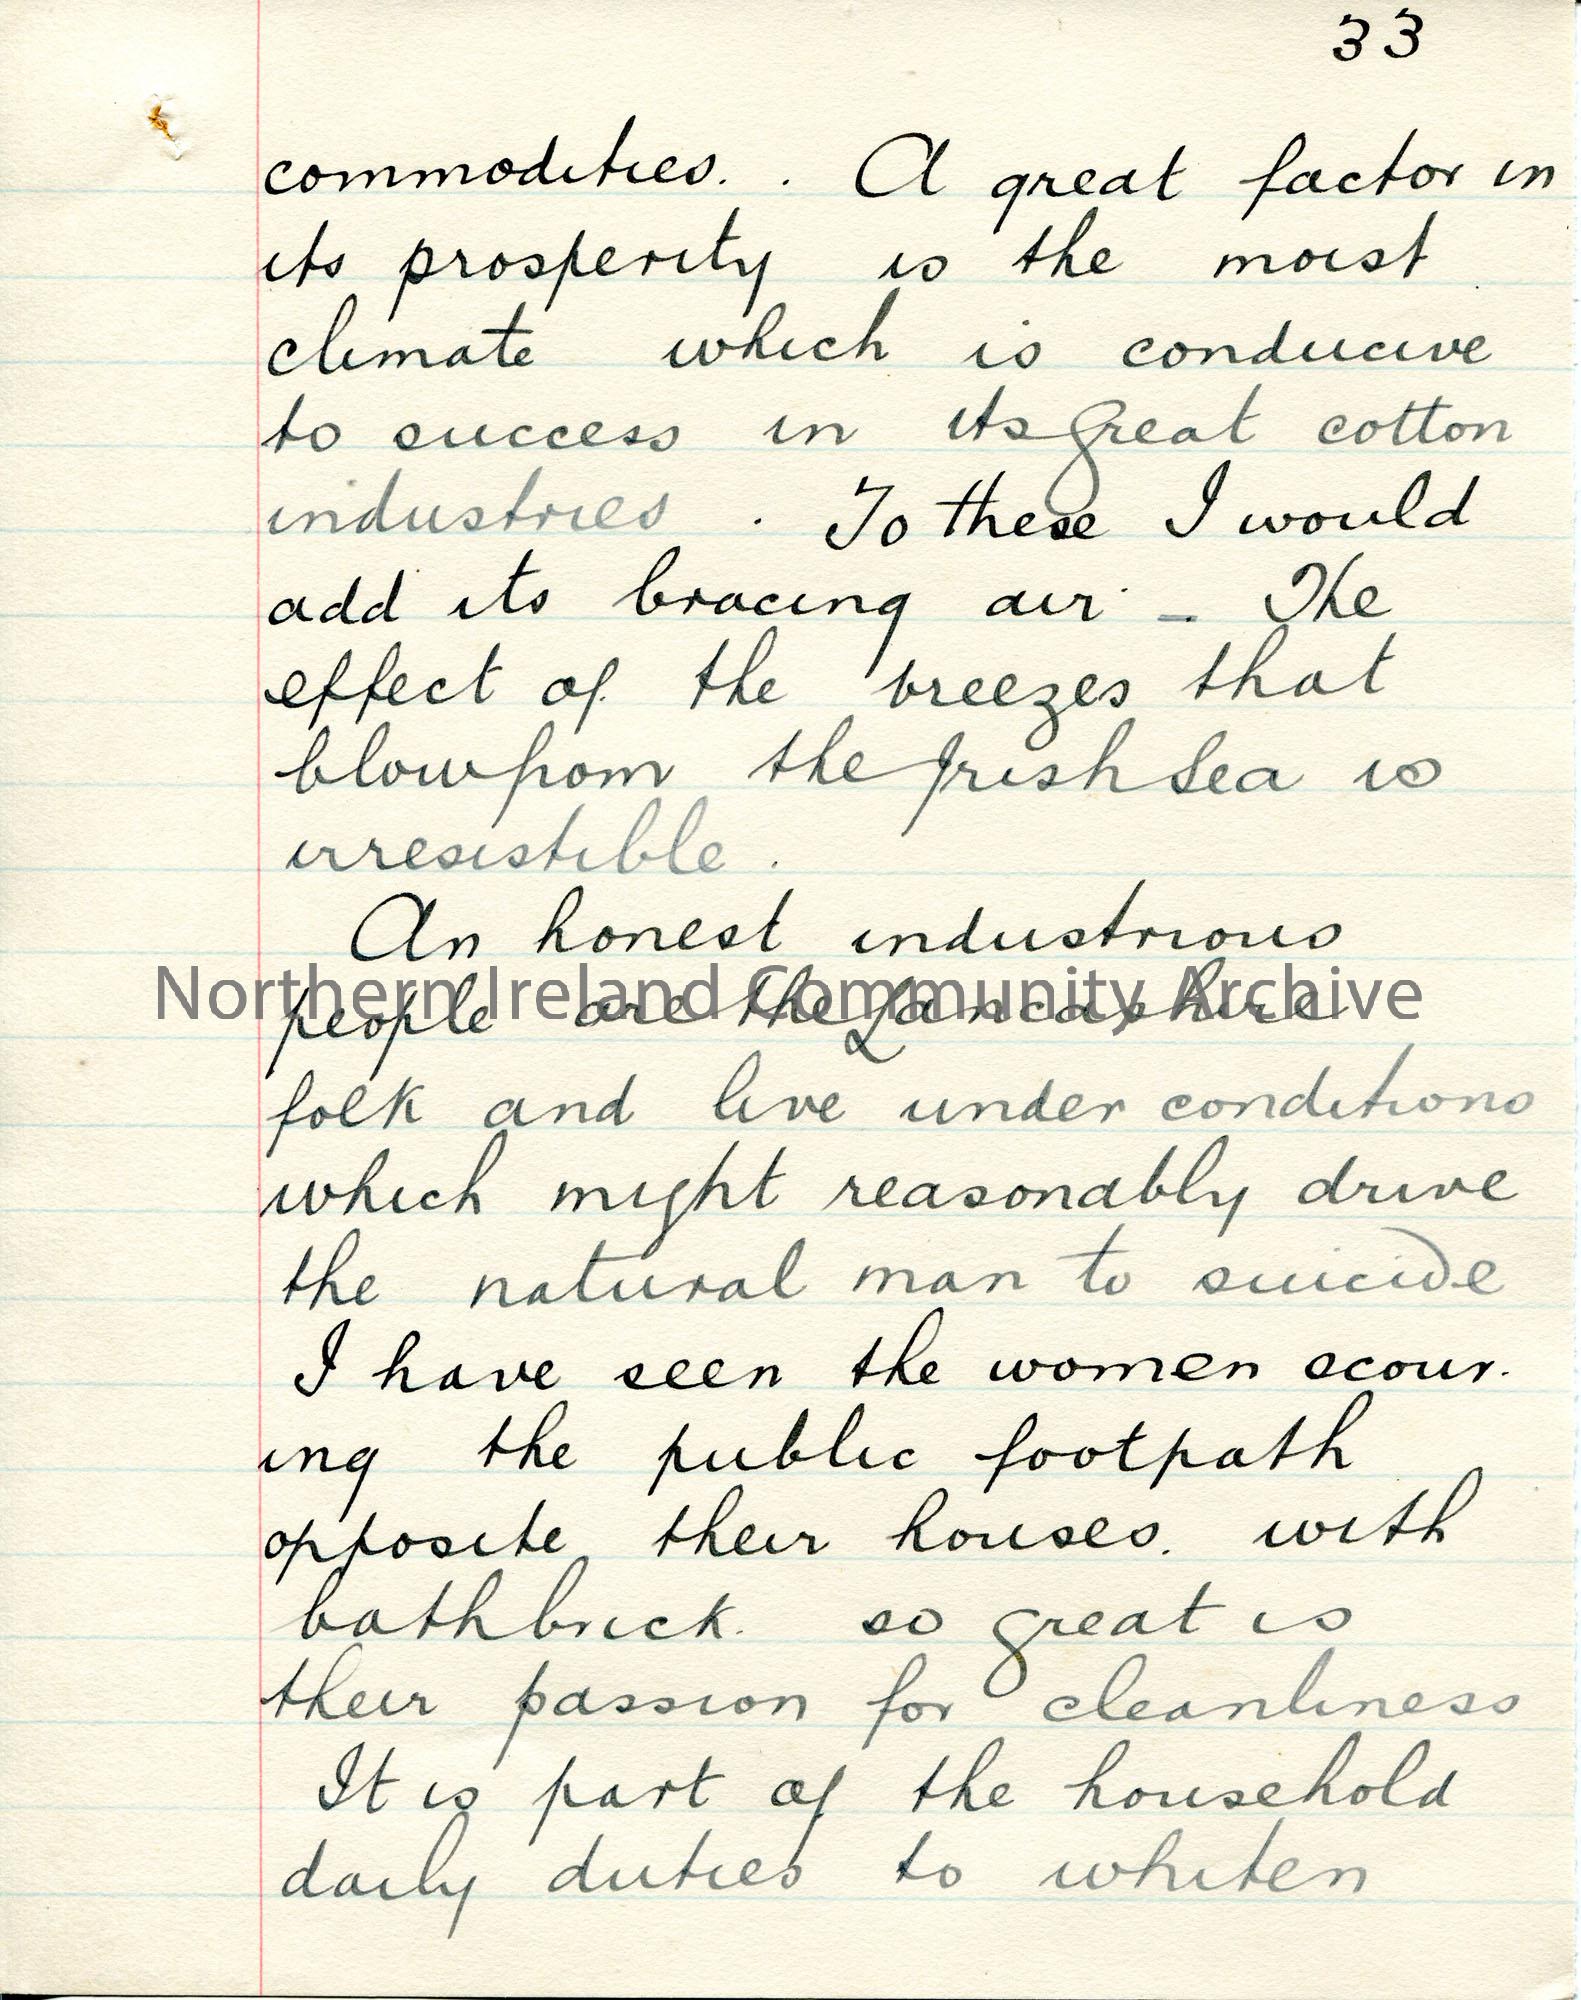 33
commodities. . A great factor in
its prosperity is the moist
climate which is conducive
to success in its great cotton
industries . To these I would
add its bracing air - The
effect of the breezes that
blow from the Irish Sea is
irresistible .
An honest industrious
Northern Ireland Community Archive
people are the Lancashire
folk and live under conditions
which might reasonably drive
the natural man to suicide
I have seen the women scour-
ing the public footpath
opposite their houses. with
bathbrick. so great is
their passion for cleanliness
It is part of the household
daily duties to whiten